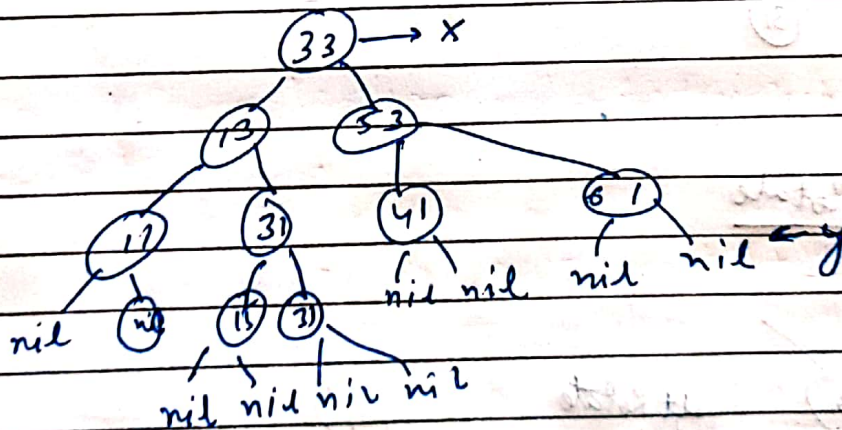 33 → x
13 53
11 31 41 61
nil nil 15 31 nil nil nil nil ← y
nil nil nil nil